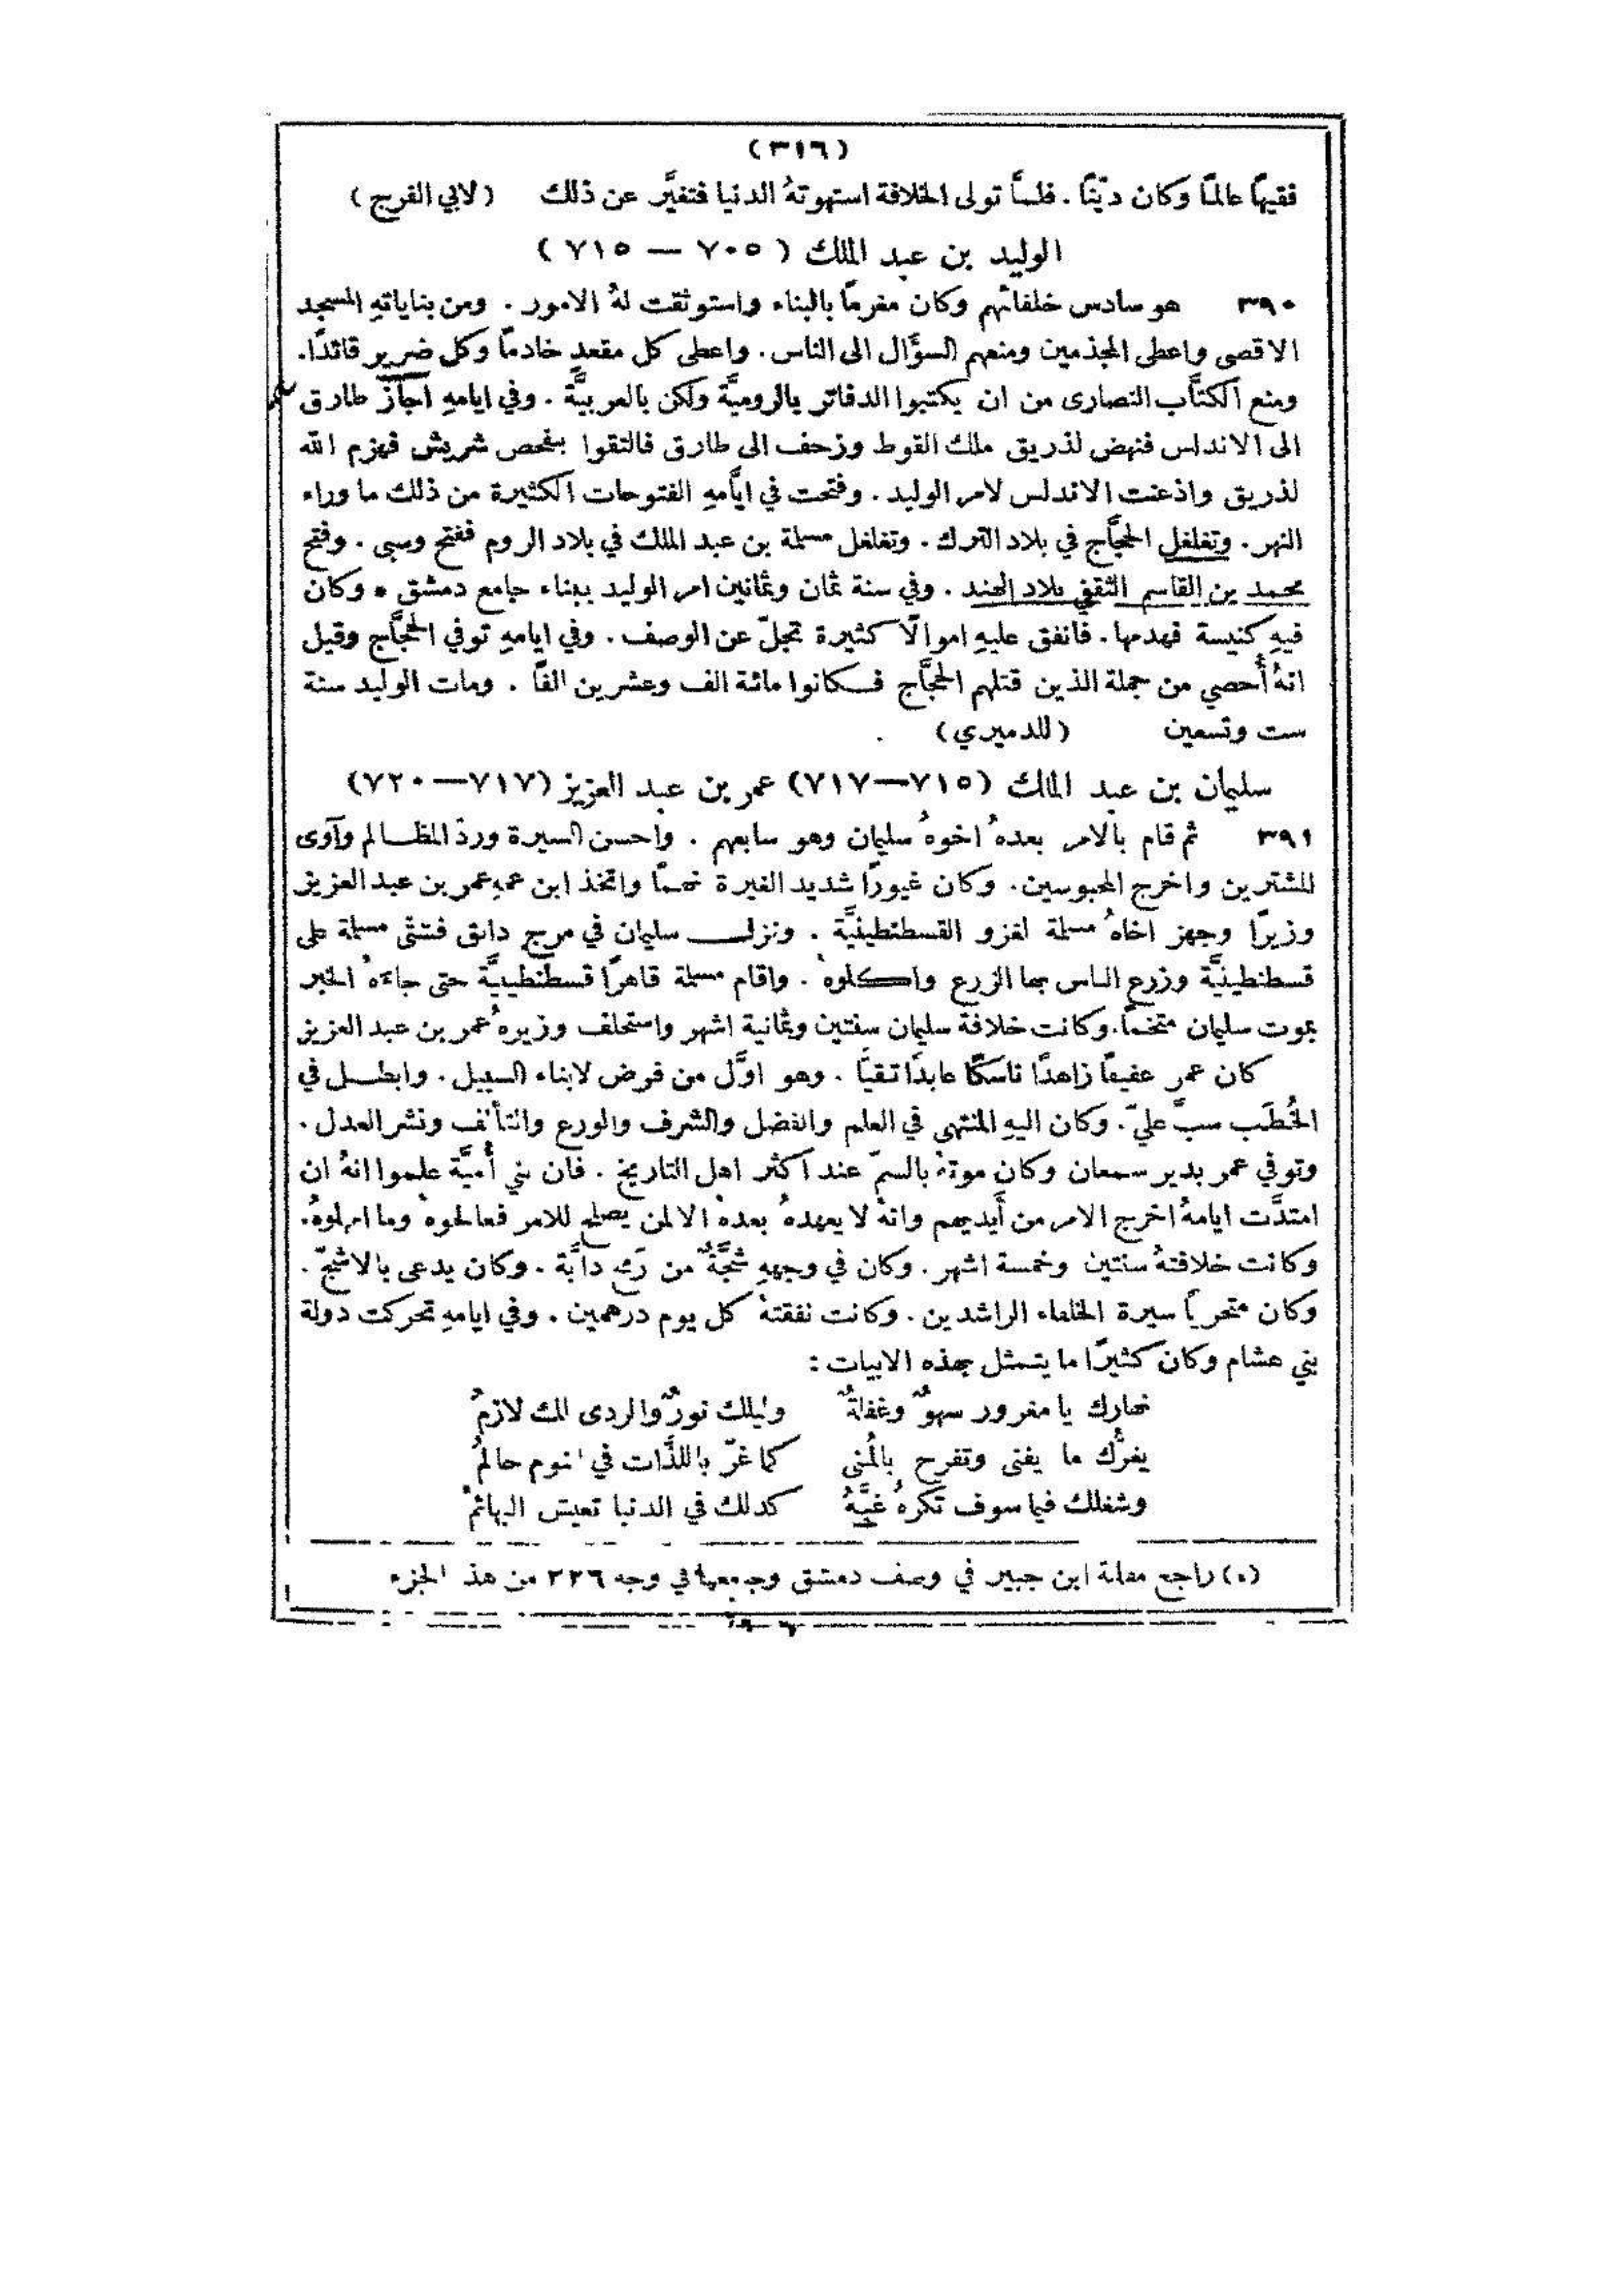 (٣١٦)
فقيهًا عالمًا وكان ديّنًا . فلمَّا تولى الخلافة استهوتهُ الدنيا فتغيَّر عن ذلك (لابي الفرج)
الوليد بن عبد الملك (٧٠٥ — ٧١٥)
٣٩٠ هو سادس خلفائهم وكان مغرمًا بالبناء واستوثقت لهُ الامور . ومن بناياتهِ المسجد
الاقصى واعطى المجذمين ومنعهم السؤَال الى الناس . واعطى كل مقعدٍ خادمًا وكل ضرير قائدًا .
ومنع الكتَّاب النصارى من ان يكتبوا الدفاتر بالروميَّة ولكن بالعربيَّة . وفي ايامهِ اجاز طارق
الى الاندلس فنهض لذريق ملك القوط وزحف الى طارق فالتقوا بفحص شريش فهزم الله
لذريق واذعنت الاندلس لامر الوليد . وفتحت في ايَّامهِ الفتوحات الكثيرة من ذلك ما وراء
النهر . وتغلغل الحجَّاج في بلاد الترك . وتغلغل مسلمة بن عبد الملك في بلاد الروم ففتح وسبى . وفتح
محمد بن القاسم الثقفي بلاد الهند . وفي سنة ثمان وثمانين امر الوليد ببناء جامع دمشق * وكان
فيهِ كنيسة فهدمها . فانفق عليهِ اموالًا كثيرة تجلّ عن الوصف . وفي ايامهِ توفي الحجَّاج وقيل
انهُ أُحصي من جملة الذين قتلهم الحجَّاج فكانوا مائة الف وعشرين الفًا . ومات الوليد سنة
ست وتسعين (للدميري)
سليمان بن عبد الملك (٧١٥—٧١٧) عمر بن عبد العزيز (٧١٧—٧٢٠)
٣٩١ ثم قام بالامر بعدهُ اخوهُ سليمان وهو سابعهم . واحسن السيرة وردَّ المظالم وآوى
المشترين واخرج المحبوسين . وكان غيورًا شديد الغيرة نهمًا واتخذ ابن عمهِ عمر بن عبد العزيز
وزيرًا وجهز اخاهُ مسلمة لغزو القسطنطينيَّة . ونزل سليمان في مرج دابق فشتَّى مسلمة على
قسطنطينيَّة وزرع الناس بها الزرع واكلوهُ . واقام مسلمة قاهرًا قسطنطينيَّة حتى جاءَهُ الخبر
بموت سليمان متخمًا . وكانت خلافة سليمان سنتين وثمانية اشهر واستخلف وزيرهُ عمر بن عبد العزيز
كان عمر عفيفًا زاهدًا ناسكًا عابدًا تقيًّا . وهو اوَّل من فرض لابناء السبيل . وابطل في
الخُطَب سبَّ عليّ . وكان اليهِ المنتهى في العلم والفضل والشرف والورع والتأَلف ونشر العدل .
وتوفي عمر بدير سمعان وكان موتهُ بالسمّ عند اكثر اهل التاريخ . فان بني أُميَّة علموا انهُ ان
امتدَّت ايامهُ اخرج الامر من أَيديهم وانهُ لا يعهدهُ بعدهُ الا لمن يصلح للامر فعالجوهُ وما امهلوهُ .
وكانت خلافتهُ سنتين وخمسة اشهر . وكان في وجههِ شجَّةٌ من رَمح دابَّة . وكان يدعى بالاشجّ .
وكان متحريًا سيرة الخلفاء الراشدين . وكانت نفقتهُ كل يوم درهمين . وفي ايامهِ تحركت دولة
بني هشام وكان كثيرًا ما يتمثل بهذه الابيات :
نهارك يا مغرور سهوٌ وغفلةٌ وليلك نومٌ والردى لك لازمُ
يغرُّك ما يفنى وتفرح بالمُنى كما غرّ باللذَّات في النوم حالمُ
وشغلك فيما سوف تكرهُ غبَّهُ كذلك في الدنيا تعيش البهائمُ
(*) راجع مقالة ابن جبير في وصف دمشق وجامعها في وجه ٢٢٦ من هذ الجزء